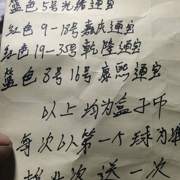 蓝色5号光绪通宝
红色9-18号嘉庆通宝
红色19-35号乾隆通宝
蓝色8号16号康熙通宝
以上均为盒子币
每次以第一个球为准
送一次